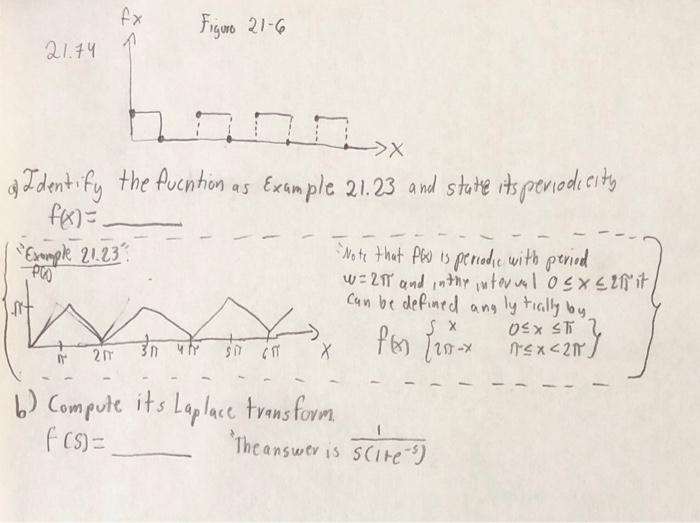 fx Figure 21-6
21.74
X
a) Identify the fucntion as Example 21.23 and state its periodicity
f(x)= ______
"Example 21.23":
f(x)
"Note that f(x) is periodic with period
w=2π and in the interval 0≤x≤2π it
can be defined analytically by
f(x) { x 0≤x≤π }
2π-x π≤x<2π
π
π 2π 3π 4π 5π 6π X
b) Compute its Laplace transform.
f(s)= ______ "The answer is 1/s(1+e^-s)